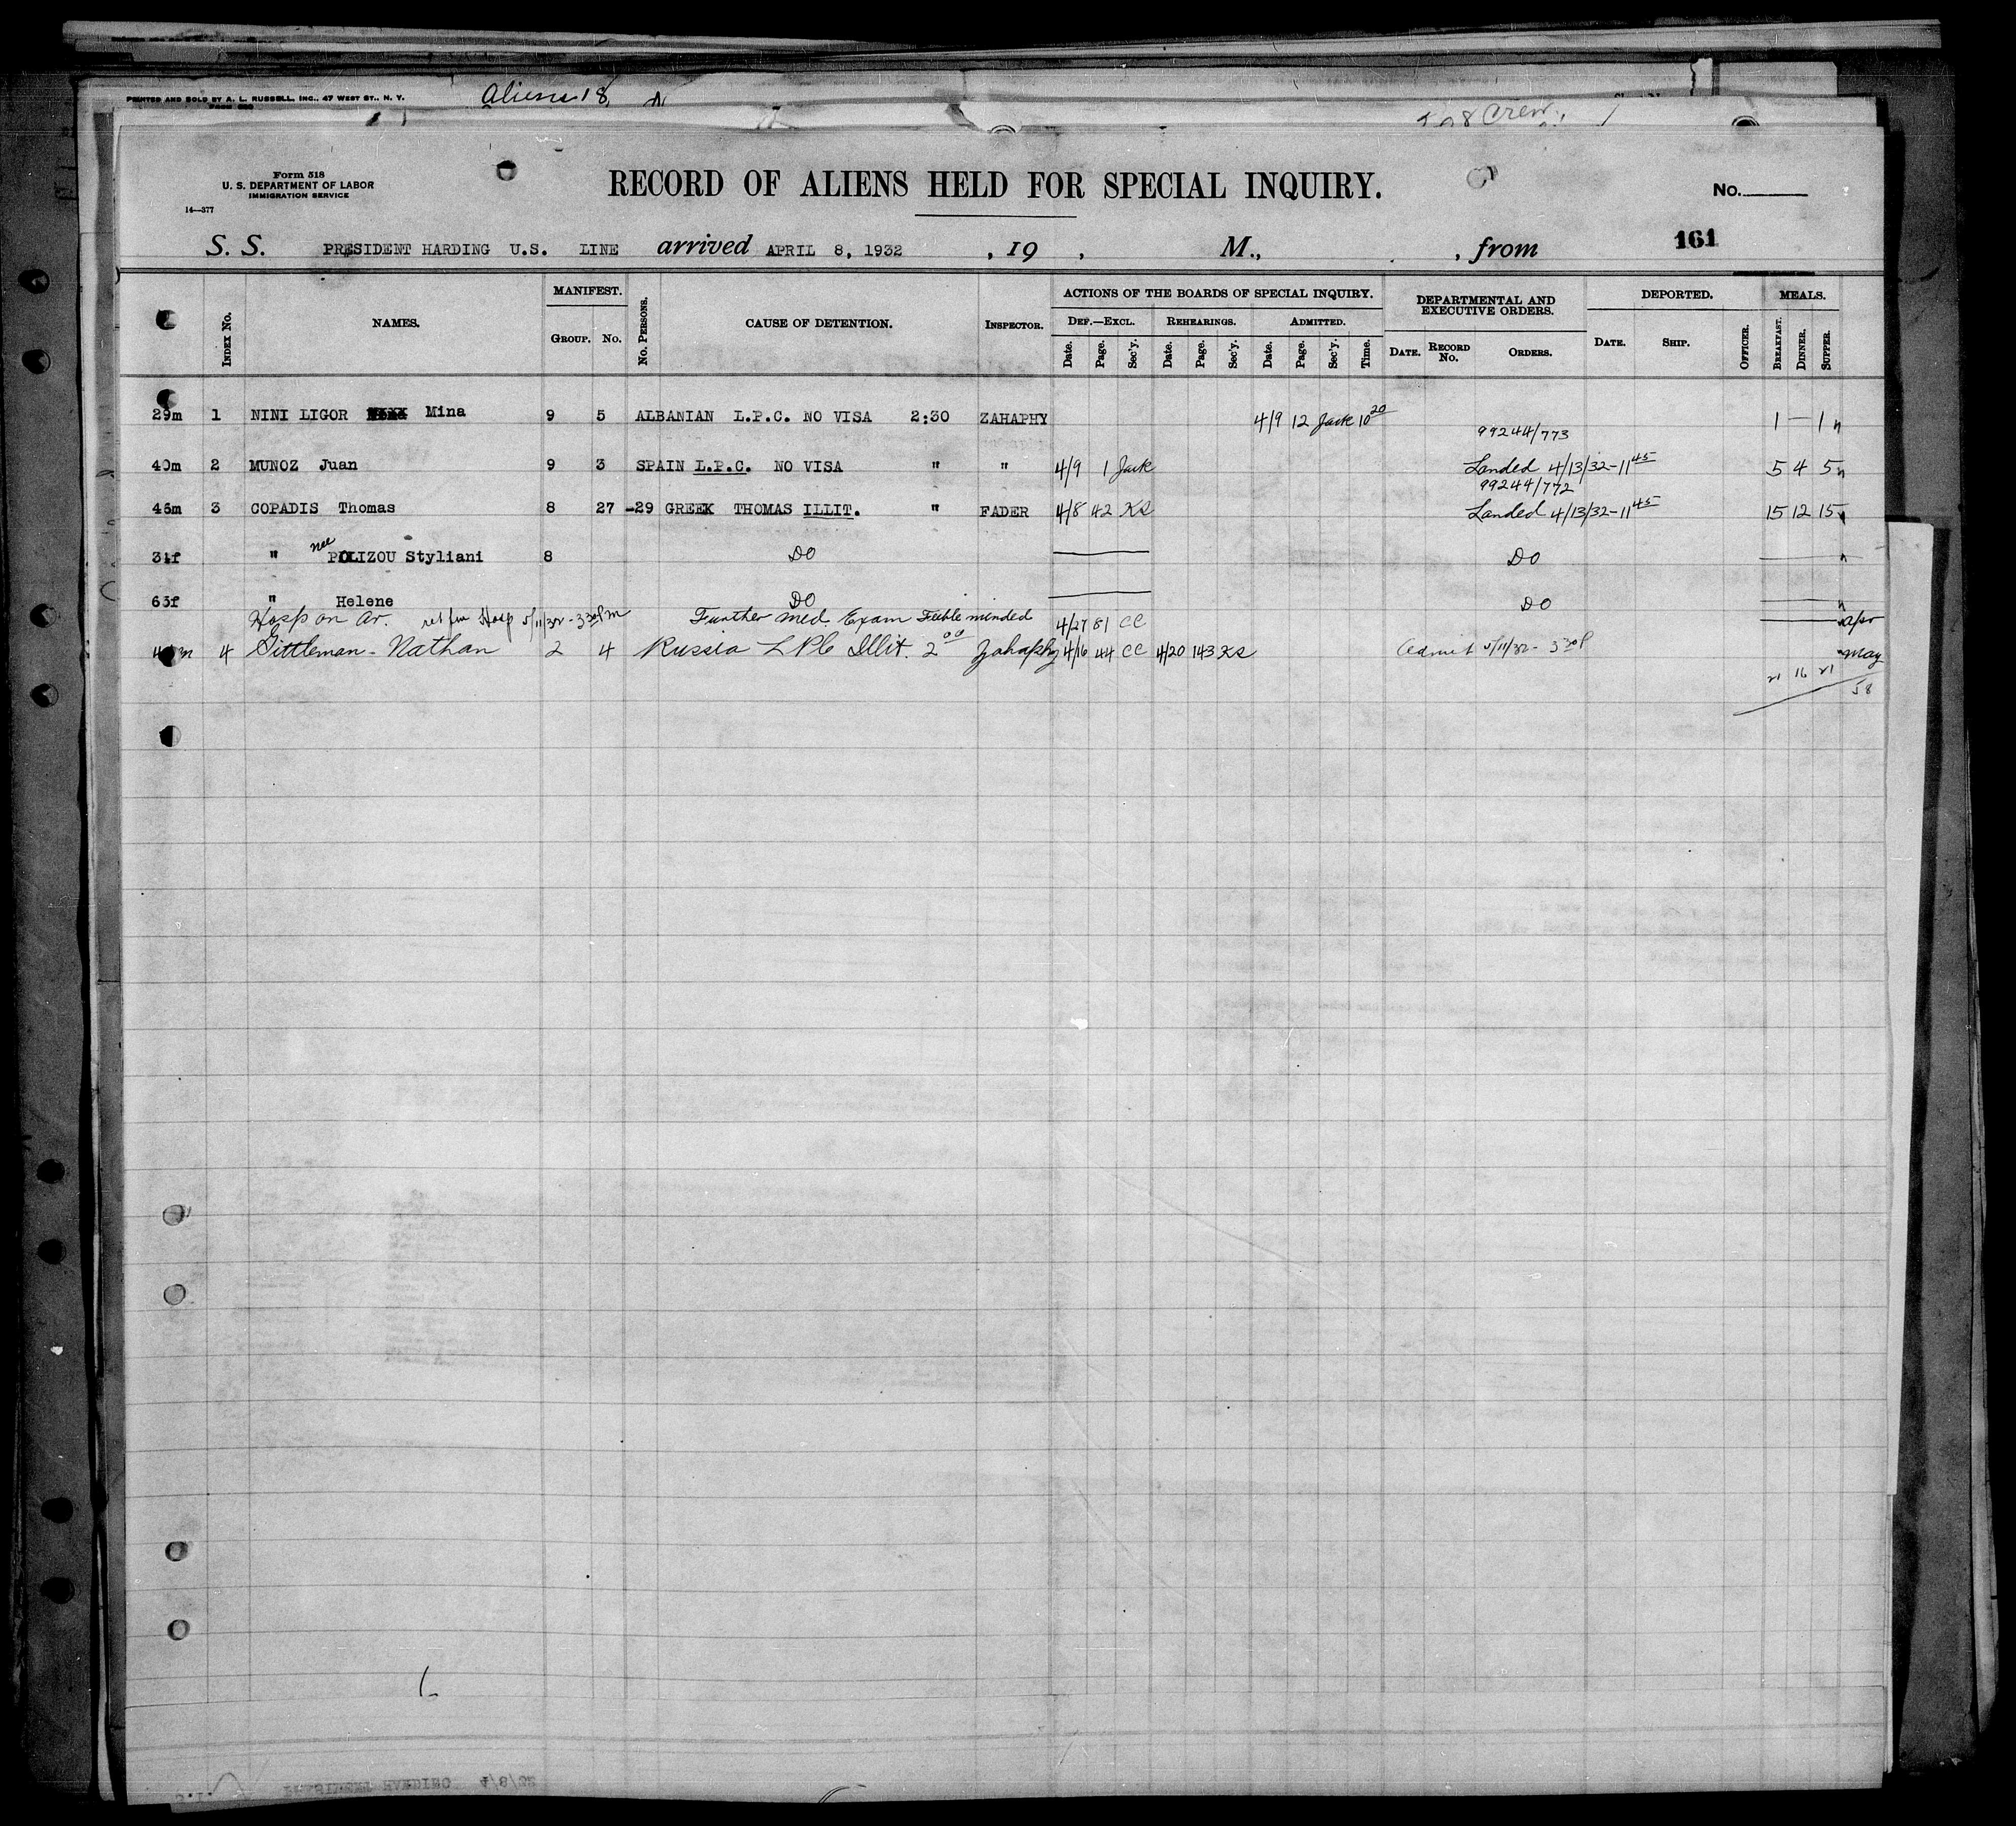 PRINTED AND SOLD BY A. L. RUSSELL, INC., 47 WEST ST., N. Y.
Aliens 18
Crew
Form 518
U. S. DEPARTMENT OF LABOR
IMMIGRATION SERVICE
14—377
RECORD OF ALIENS HELD FOR SPECIAL INQUIRY.
No.
161
S. S. PRESIDENT HARDING U.S. LINE arrived APRIL 8, 1932 , 19 , M., , from
INDEX No. NAMES. MANIFEST. GROUP. No. No. PERSONS. CAUSE OF DETENTION. INSPECTOR. ACTIONS OF THE BOARDS OF SPECIAL INQUIRY. DEF.—EXCL. Date. Page. Sec'y. REHEARINGS. Date. Page. Sec'y. ADMITTED. Date. Page. Sec'y. Time. DEPARTMENTAL AND EXECUTIVE ORDERS. DATE. RECORD No. ORDERS. DEPORTED. DATE. SHIP. OFFICER. MEALS. BREAKFAST. DINNER. SUPPER.
29m 1 NINI LIGOR Mina 9 5 ALBANIAN L.P.C. NO VISA 2:30 ZAHAPHY 4/9 12 Jack 10 20 1 — 1 n
99244/773
40m 2 MUNOZ Juan 9 3 SPAIN L.P.C. NO VISA " " 4/9 1 Jack Landed 4/13/32-11 45 5 4 5 n
99244/772
46m 3 COPADIS Thomas 8 27 -29 GREEK THOMAS ILLIT. " FADER 4/8 42 KS Landed 4/13/32-11 45 15 12 15
31f " nee POLIZOU Styliani 8 DO DO "
63f " Helene DO DO "
Hosp on Ar. ret fm Hosp 5/11/32-3 30 PM Further med Exam Feeble minded 4/27 81 CC Apr
m 4 Gittleman - Nathan 2 4 Russia LPC Illit. 2 00 Zahaphy 4/16 44 CC 4/20 143 KS Admit 5/11/32- 3 30 P May
21 16 21 58
PRESIDENT HARDING 4/8/32